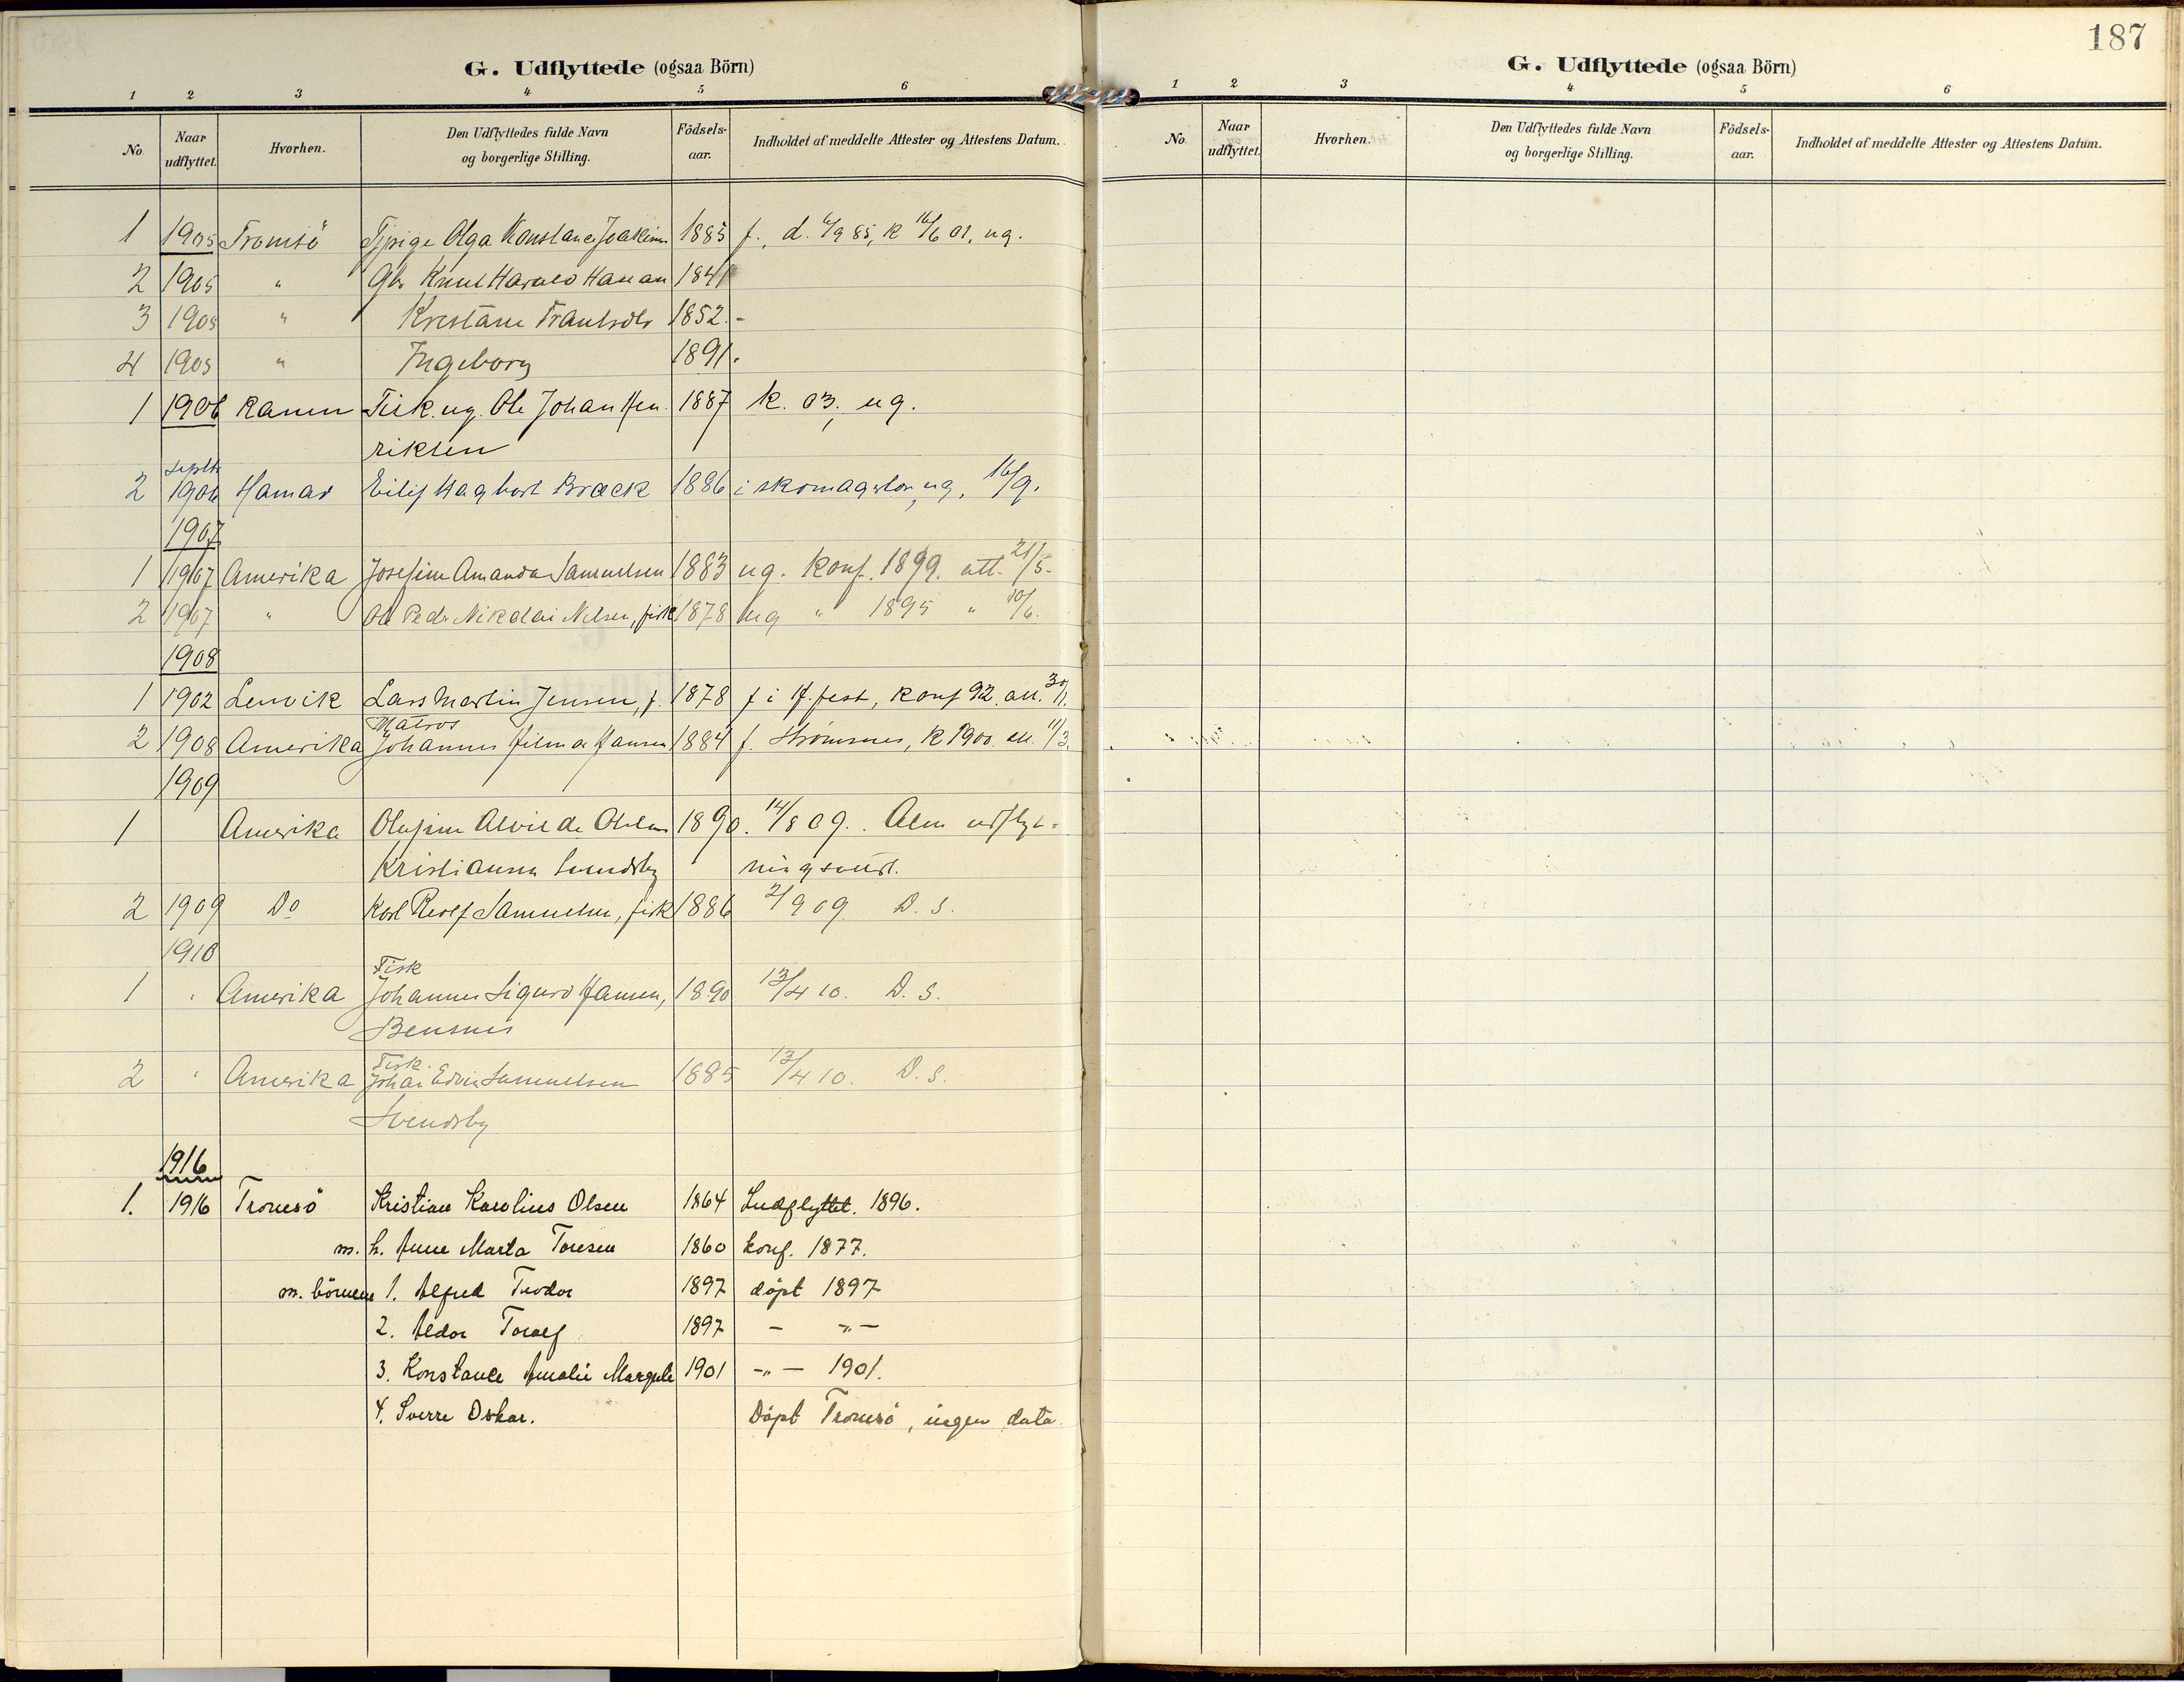 G. Udflyttede (ogsaa Börn)
1 2 3 4 5 6
No. Naar udflyttet. Hvorhen. Den Udflyttedes fulde Navn og borgerlige Stilling. Födsels-aar. Indholdet af meddelte Attester og Attestens Datum.
1 1905 Tromsö Olga Konstance Joakims 1885 f., d. 6/9 85, k 16/6 01, ug.
2 1905 " Gbr Knut Harald 1841
3 1905 " 1852.-
4 1905 " Ingeborg 1891.
1 1906 Ranen Fisk. ug. Ole Johan Hen 1887 k. 03, ug.
riksen
Septb
2 1906 Hamar Eilif Hagbart Bræck 1886 i ug. 16/9.
1907
1 1907 Amerika Josefine Amanda Samuelsen 1883 ug. konf. 1899. att. 21/5-
2 1907 " Ole Peder Nikolai Nilsen, fisk 1878 ug " 1895 " 10/6.
1908
1 1902 Lenvik Lars Martin Jensen, f. 1878 f i konf 92. att. 30/1.
Matros
2 1908 Amerika Johannes Hilmar Hansen 1884 f. Strömsnes, k 1900. att. 11/3.
1909
1 Amerika Olufine Alvilde 1890. 14/8 09. Alm udflyt-
Kristianna Svendsby
2 1909 Do Karl Rolf Samuelsen, fisk 1886 2/9 09 D. S.
1910
Fisk
1 " Amerika Johannes Sigurd Hansen, 1890 13/4 10. D. S.
Bensnes
Fisk.
2 " Amerika Johan Edvin Samuelsen 1885 13/4 10. D. S.
Svendsby
1916
1. 1916 Tromsö Kristian Karolius Olsen 1864 Indflyttet. 1896.
m. h. Anne Marta Toresen 1860 konf. 1877.
m. börnene 1. Alfred Teodor 1897 döpt 1897
2. Aldor Toralf 1897 - -"-
3. Konstance Amalie 1901 -"- 1901.
4. Sverre Oskar. Döpt Tromsö, ingen data
187
G. Udflyttede (ogsaa Börn)
1 2 3 4 5 6
No. Naar udflyttet. Hvorhen. Den Udflyttedes fulde Navn og borgerlige Stilling. Födsels-aar. Indholdet af meddelte Attester og Attestens Datum.